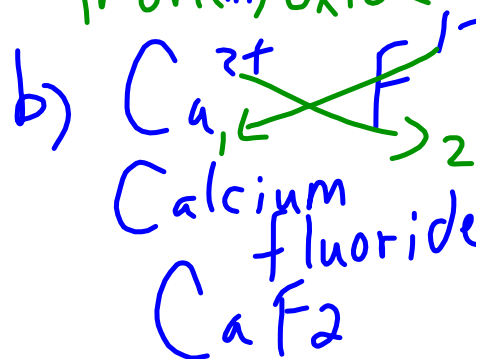 b) Ca 2+ F 1-
1 2
Calcium
fluoride
CaF2